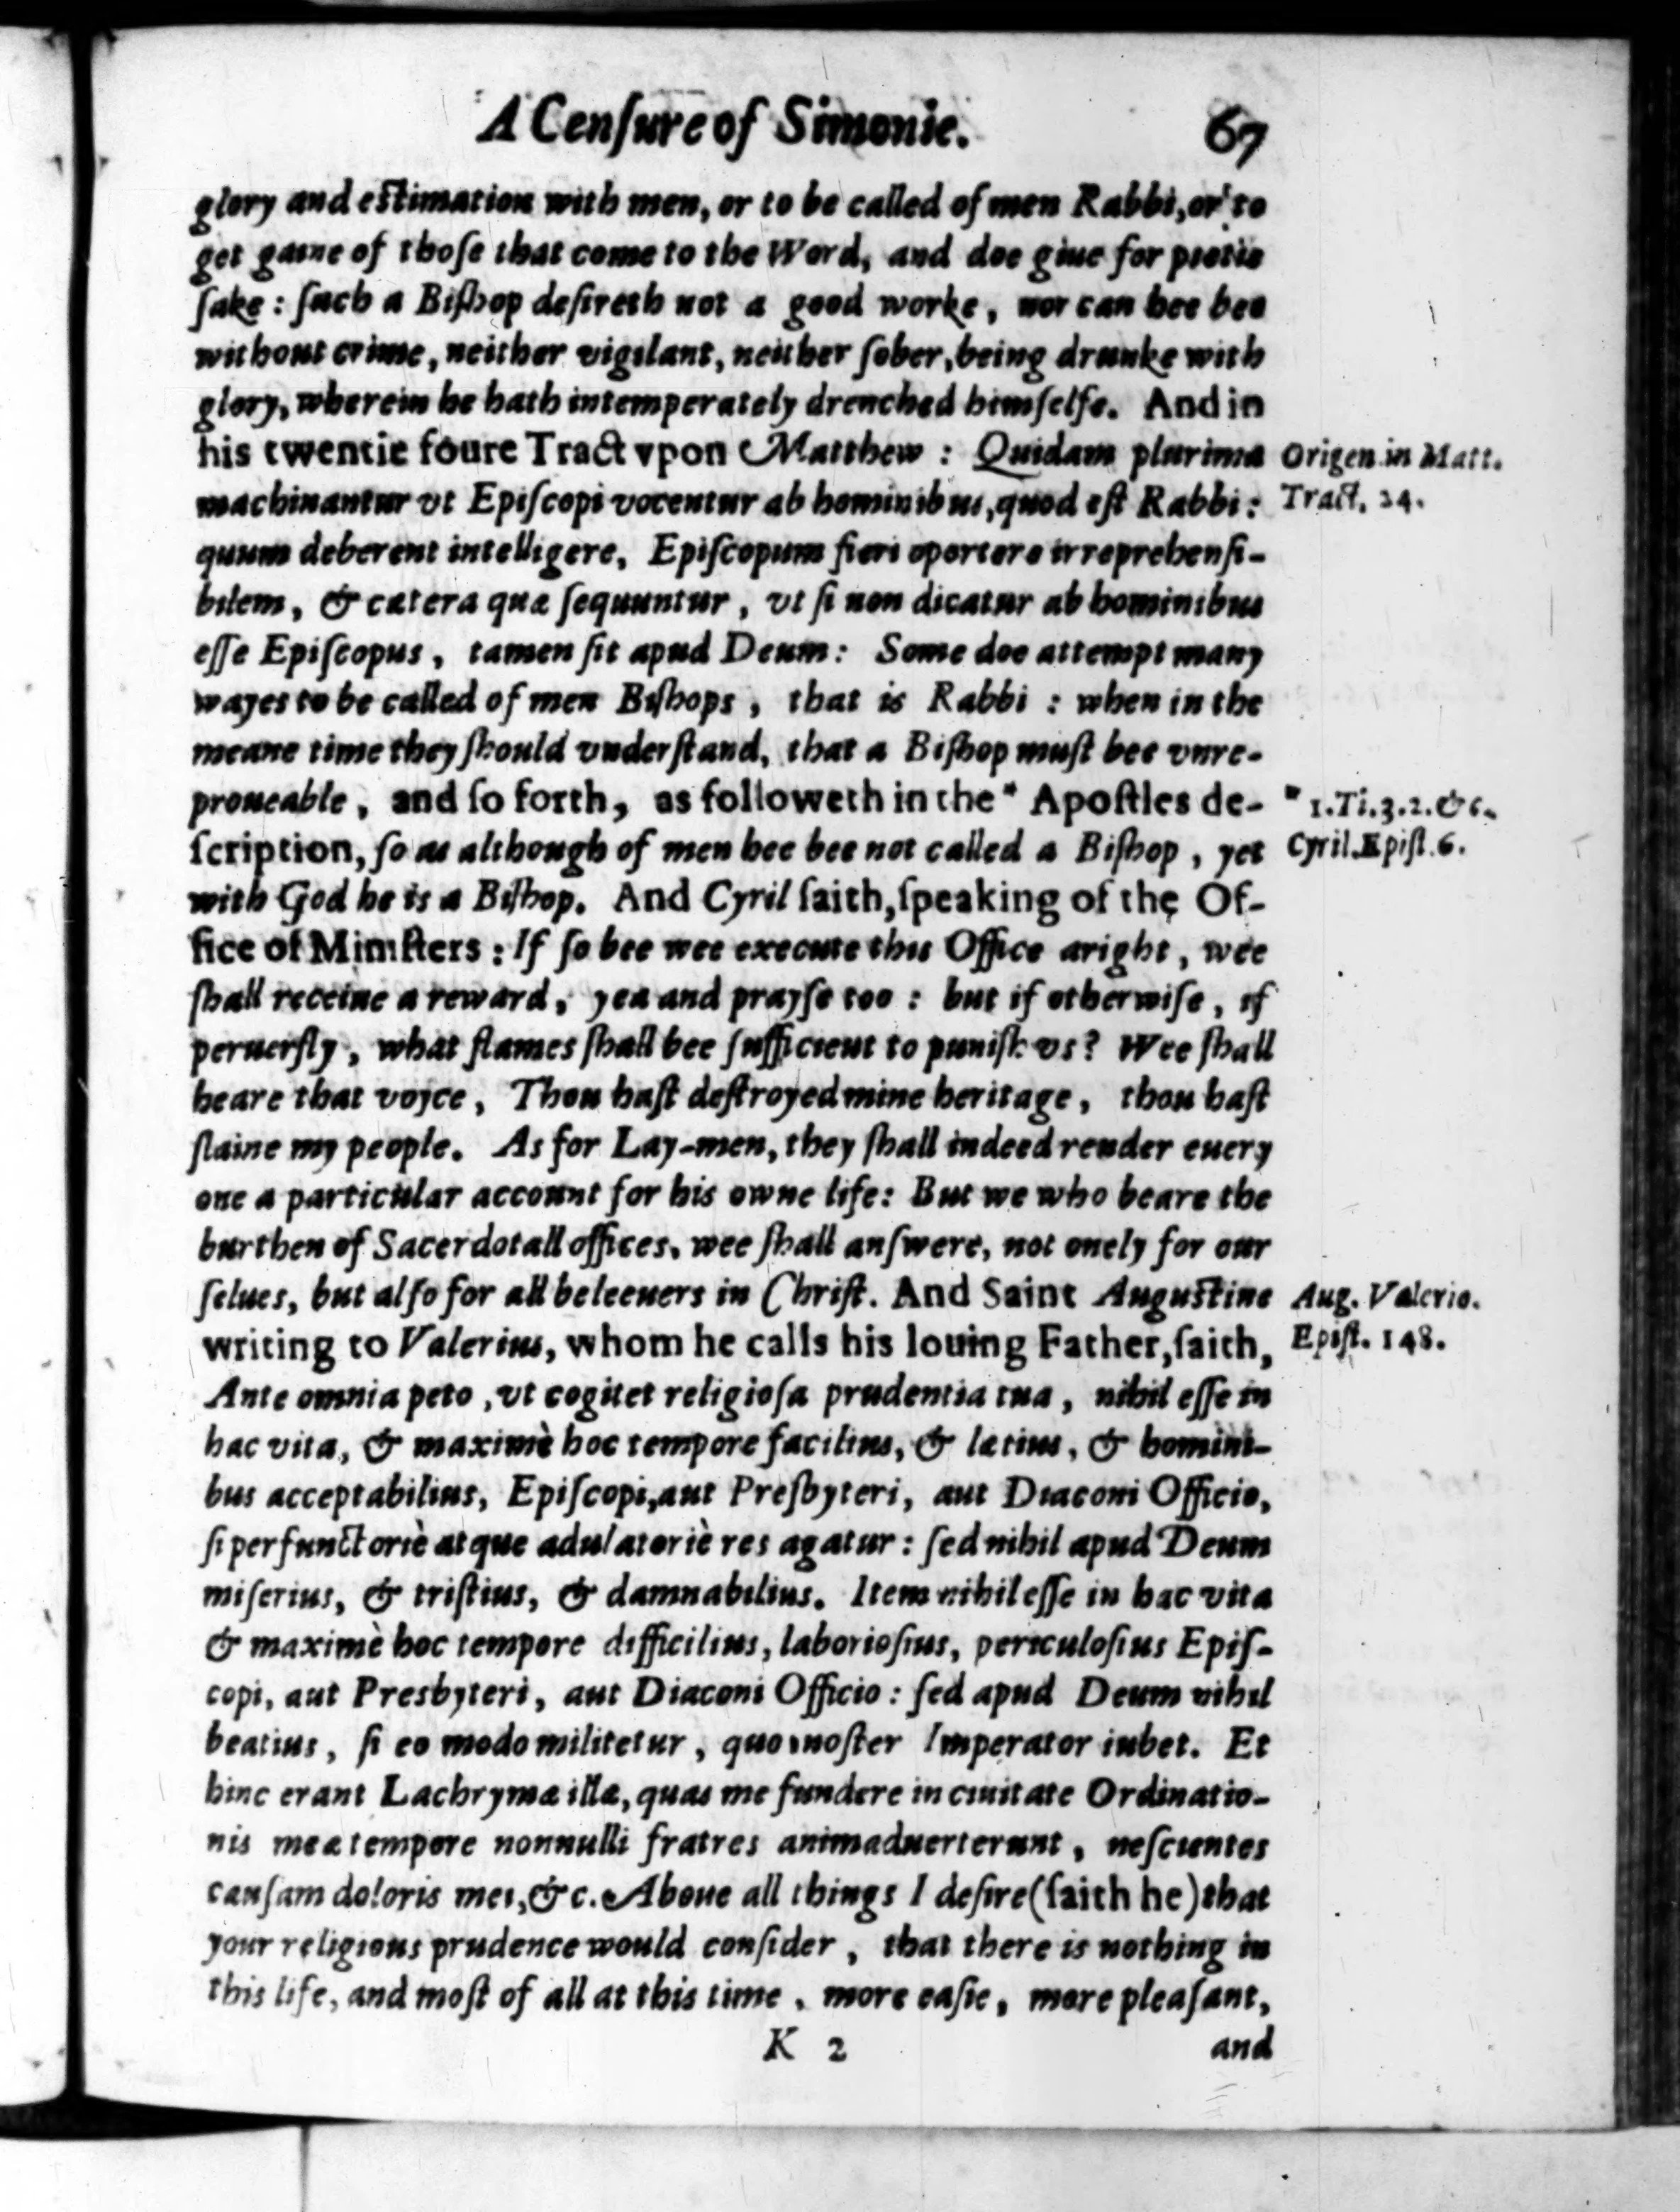 A Cenſure of Simonie. 67
glory and eſtimation with men, or to be called of men Rabbi, or to
get gaine of thoſe that come to the Word, and doe giue for pietie
ſake : ſuch a Biſhop deſireth not a good worke, nor can hee bee
without crime, neither vigilant, neither ſober, being drunke with
glory, wherein he hath intemperately drenched himſelfe. And in
his twentie foure Tract vpon Matthew : Quidam plurima
machinantur vt Epiſcopi vocentur ab hominibus, quod eſt Rabbi :
quum deberent intelligere, Epiſcopum fieri oportere irreprehenſi-
bilem, & cætera quæ ſequuntur, vt ſi non dicatur ab hominibus
eſſe Epiſcopus, tamen ſit apud Deum : Some doe attempt many
wayes to be called of men Biſhops, that is Rabbi : when in the
meane time they ſhould vnderſtand, that a Biſhop muſt bee vnre-
proueable, and ſo forth, as followeth in the * Apoſtles de-
ſcription, ſo as although of men hee bee not called a Biſhop, yet
with God he is a Biſhop. And Cyril ſaith, ſpeaking of the Of-
fice of Miniſters : If ſo bee wee execute this Office aright, wee
ſhall receiue a reward, yea and prayſe too : but if otherwiſe, if
peruerſly, what flames ſhall bee ſufficient to puniſh vs? Wee ſhall
heare that voyce, Thou haſt deſtroyed mine heritage, thou haſt
ſlaine my people. As for Lay-men, they ſhall indeed render euery
one a particular account for his owne life : But we who beare the
burthen of Sacerdotall offices, wee ſhall anſwere, not onely for our
ſelues, but alſo for all beleeuers in Chriſt. And Saint Auguſtine
writing to Valerius, whom he calls his louing Father, ſaith,
Ante omnia peto, vt cogitet religioſa prudentia tua, nihil eſſe in
hac vita, & maximè hoc tempore facilius, & lætius, & homini-
bus acceptabilius, Epiſcopi, aut Preſbyteri, aut Diaconi Officio,
ſi perfunctoriè atque adulatoriè res agatur : ſed nihil apud Deum
miſerius, & triſtius, & damnabilius. Item nihil eſſe in hac vita
& maximè hoc tempore difficilius, laborioſius, periculoſius Epiſ-
copi, aut Presbyteri, aut Diaconi Officio : ſed apud Deum nihil
beatius, ſi eo modo militetur, quo noſter Imperator iubet. Et
hinc erant Lachrymæ illæ, quas me fundere in ciuitate Ordinatio-
nis meæ tempore nonnulli fratres animaduerterunt, neſcientes
cauſam doloris mei, &c. Aboue all things I deſire (ſaith he) that
your religious prudence would conſider, that there is nothing in
this life, and moſt of all at this time, more eaſie, more pleaſant,
K 2 and
Origen in Matt.
Tract. 24.
* 1.Ti.3.2.&c.
Cyril.Epiſt.6.
Aug. Valerio.
Epiſt. 148.